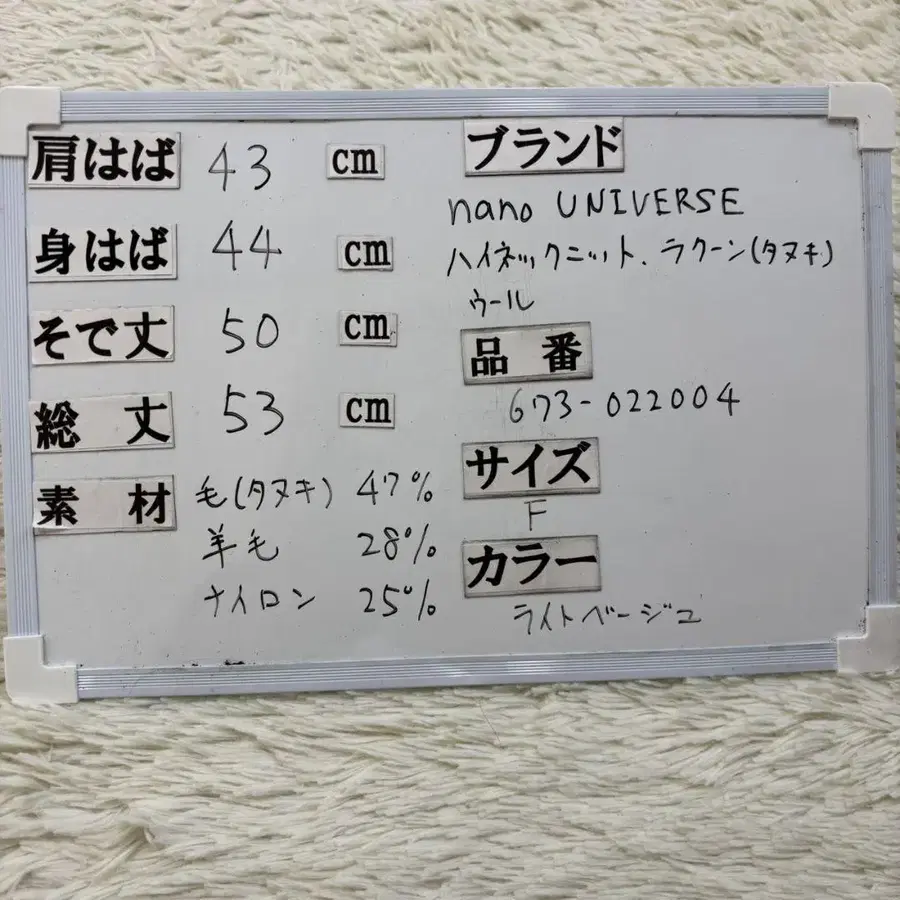 肩はば 43 cm
身はば 44 cm
そで丈 50 cm
総丈 53 cm
素材 毛(タヌキ) 47%
羊毛 28%
ナイロン 25%
ブランド
nano UNIVERSE
ハイネックニット、ラクーン(タヌキ)
ウール
品番
673-022004
サイズ
F
カラー
ライトベージュ